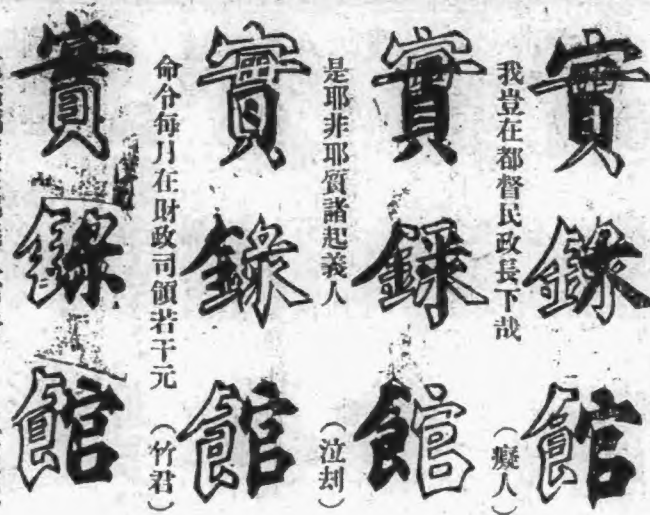 實錄館
我豈在都督民政長下哉（癡人）
實錄館
是耶非耶質諸起義人（泣刦）
實錄館
命令每月在財政司領若干元（竹君）
實錄館